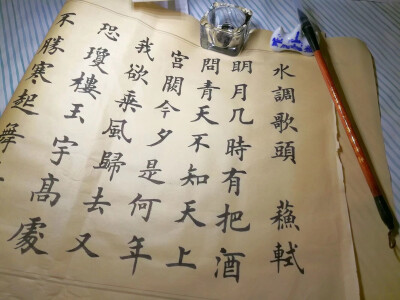 水調歌頭 蘇軾
明月几時有把酒
問青天不知天上
宮闕今夕是何年
我欲乘風歸去又
恐瓊樓玉宇高處
不勝寒起舞